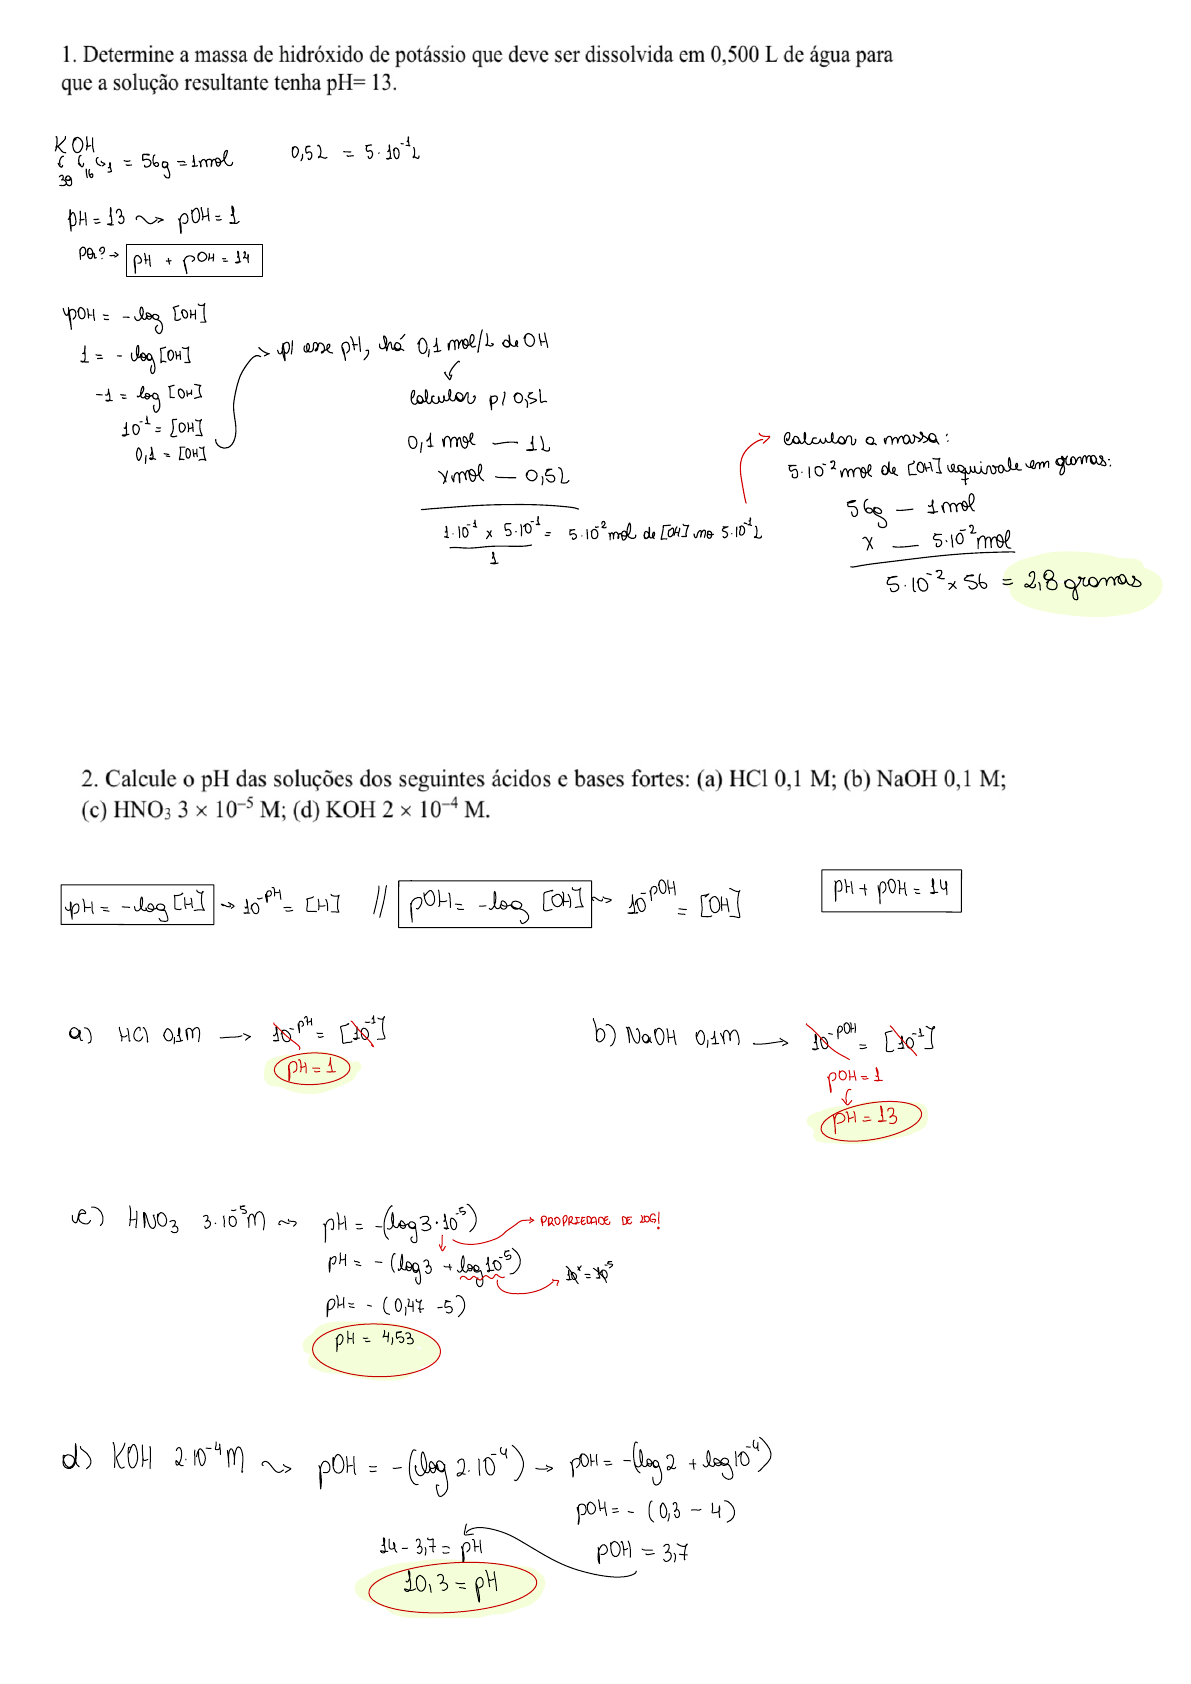 1. Determine a massa de hidróxido de potássio que deve ser dissolvida em 0,500 L de água para
que a solução resultante tenha pH= 13.
KOH
39 16 1 = 56g = 1mol
0,5L = 5·10⁻¹L
pH = 13 ⤳ pOH = 1
pH + pOH = 14
pOH = - log [OH]
1 = - log [OH]
-1 = log [OH]
10⁻¹ = [OH]
0,1 = [OH]
→ p/ esse pH, há 0,1 mol/L de OH
calcular p/ 0,5L
0,1 mol — 1L
x mol — 0,5L
1·10⁻¹ x 5·10⁻¹ = 5·10⁻² mol de [OH] no 5·10⁻¹L
1
→ calcular a massa:
5·10⁻² mol de [OH] equivale em gramas:
56g — 1mol
x — 5·10⁻² mol
5·10⁻² x 56 = 2,8 gramas
2. Calcule o pH das soluções dos seguintes ácidos e bases fortes: (a) HCl 0,1 M; (b) NaOH 0,1 M;
(c) HNO₃ 3 × 10⁻⁵ M; (d) KOH 2 × 10⁻⁴ M.
pH = - log [H] → 10⁻ᵖᴴ = [H] // pOH = - log [OH] ⤳ 10⁻ᵖᴼᴴ = [OH]
pH + pOH = 14
a) HCl 0,1M → 10⁻ᵖᴴ = [10⁻¹]
pH = 1
b) NaOH 0,1M → 10⁻ᵖᴼᴴ = [10⁻¹]
pOH = 1
pH = 13
c) HNO₃ 3·10⁻⁵M ⤳ pH = -(log 3·10⁻⁵) → PROPRIEDADE DE LOG!
pH = - (log 3 + log 10⁻⁵) → 10ˣ = 10⁻⁵
pH = - (0,47 -5)
pH = 4,53
d) KOH 2·10⁻⁴M ⤳ pOH = -(log 2·10⁻⁴) → pOH = -(log 2 + log 10⁻⁴)
pOH = - (0,3 - 4)
pOH = 3,7
14 - 3,7 = pH
10,3 = pH